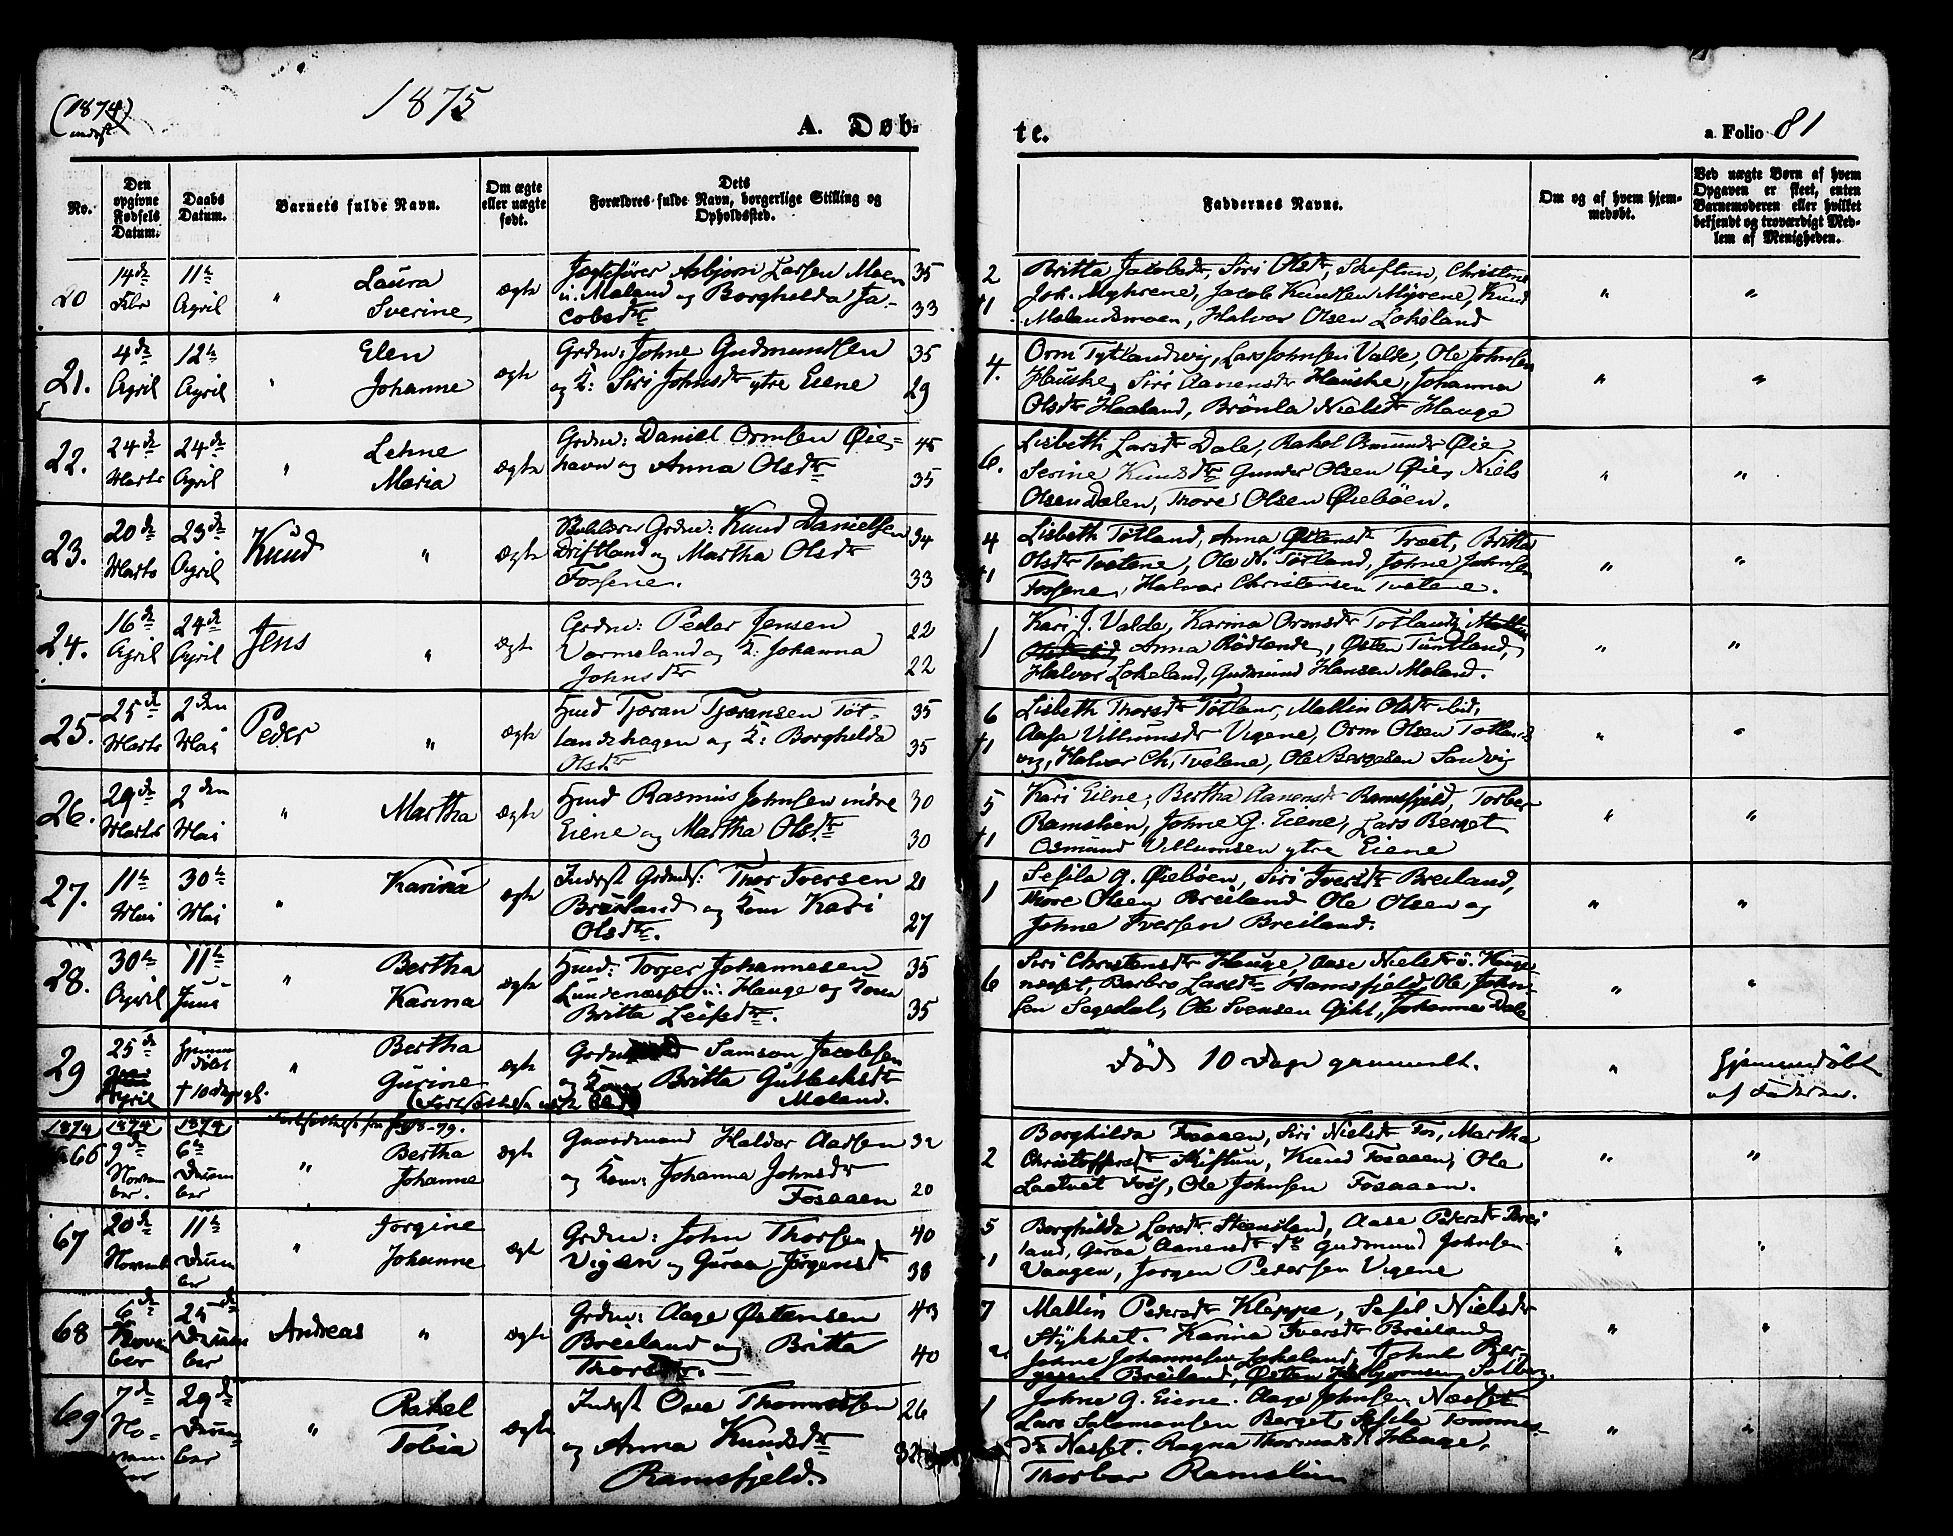 (1874)
nederst
1875
A. Døb-
te.
a. Folio 81
No.
Den opgivne Fødsels Datum.
Daabs Datum.
Barnets fulde Navn.
Om ægte eller uægte født.
Dets Forældres fulde Navn, borgerlige Stilling og Opholdsted.
Faddernes Navne.
Om og af hvem hjem-
medøbt.
Ved uægte Børn af hvem
Opgaven er skeet, enten
Barnemoderen eller hvilket
bekjendt og troværdigt Med-
lem af Menigheden.
20 14de Febr 11te April " Laura Sverine ægte
Asbjørn Larsen Moen 35
i. Moland og Borghilda Ja- 33
cobsdtr
2 Britta Jacobsdtr, Siri Olsdtr, Christine
+1 Joh. Myhrene, Jacob Knudsen Myrene, Knud
Molandsmoen, Halvor Olsen Lokeland " "
21. 4de April 12te April " Elen Johanne ægte
Grdm: Johne Gudmundsen 35
og K: Siri Johnsdtr ytre Eiene 29
4. Orm Tytlandsvig, Lars Johnsen Valde, Ole Johnsen
Hauske, Siri Aanensdtr Hauske, Johanna
Olsdtr Haaland, Brönla Nielsdtr Hauge " "
22. 24de Marts 24de April " Lehne Maria ægte
Grdm: Daniel Ormsen Øie- 45
havn og Anna Olsdtr 35
6. Lisbeth Larsdtr Dale, Rakel Osmundsdr Øie,
Serine Knudsdtr Gunder Olsen Øie, Niels
Olsen Dalen, Thore Olsen Øiebøen. " "
23. 20de Marts 23de April Knud " ægte
Grdm: Knud Danielsen 34
Driftland og Martha Olsdtr 33
Fossene.
4 Lisbeth Tøtland, Anna Østensdtr Træet, Britta
+1 Olsdtr Tvetene, Ole N. Tøtland, Johne Johnsen
Fossene, Halvor Christensen Tvetene. " "
24. 16de April 24de April Jens " ægte
Grdm: Peder Jensen 22
Varmeland og K: Johanna 22
Johnsdtr
1 Kari J. Valde, Karina Ormsdtr Totlandsv.
Anna Rødlande, Østen Tuntland,
Halvor Lokeland, Gudmund Hansen Moland. " "
25. 25de Marts 2den Mai Peder " ægte
Hmd Tjæran Tjæransen Tøt- 35
landshagen og K: Borghilda 35
Olsdtr
6 Lisbeth Thorsdtr Tøtland, Mallin Olsdtr ibid,
+1 Aasa Villumsdtr Vigene, Orm Olsen Totlands
vig, Halvor Ch. Tvetene, Ole Bergesen Sandvig " "
26. 29de Marts 2den Mai " Martha ægte
Hmd Rasmus Johnsen indre 30
Eiene og Martha Olsdtr 30
5 Kari Eiene, Bertha Aanensdtr Ramsfjeld, Torber
+1 Ramslien, Johne G. Eiene, Lars Berget
Osmund Villumsen ytre Eiene " "
27. 11te Mai 30te Mai " Karina ægte
Inderst Grdmds: Thor Iversen 21
Breiland og Kone Kari 27
Olsdtr.
1 Sesila G. Øiebøen, Siri Iversdtr Breiland,
Thore Olsen Breiland Ole Olsen og
Johne Iversen Breiland. " "
28. 30te April 11te Juni " Bertha Karina ægte
Hmd: Torger Johannesen 35
Lundenæsset i: Hauge og Kone
Britta Leifsdtr. 35
6 Siri Christensdtr Hauge, Aase Nielsdtr i. Hauge
næsset, Barbro Larsdtr Ramsfjeld, Ole John-
sen Segedal, Ole Svensen Gikl, Johannes Dale " "
29 25de April Hjemme døbt † 10 dage gl. " Bertha Gurine ægte
Grdm Samson Jacobsen
og Kone Britta Gutleiksdtr
Moland.
Død 10 Dage gammelt. " Hjemmedøbt
af Faderen.
1874 1874 1874 Fortsættelse fra 78-79.
66 9de Novem ber. 6te Decem ber " Bertha Johanne ægte
Gaardmand Haldor Aadsen 32
og Kone: Johanna Johnsdtr
Fosaaen 20
2 Borghilda Fosaaen, Siri Nielsdtr Fos, Martha
Christoffersdtr Skiftun, Knud Fosaaen, Ole
Laatvet Fos, Ole Johnsen Fosaaen. " "
67 20de Novemb 11te Decem ber " Jorgine Johanne ægte
Grdm: John Thorsen 40
Vigen og Guraa Jörgensdtr 38
5 Borghilda Larsdtr Steensland, Aase Pedersdtr Brei
1 land, Guraa Aanensdtr do Gudmund Johnsen
Vaagen, Jorgen Pedersen Vigene " "
68 6de Novem ber 25de Decem ber Andreas " ægte
Grdm: Aage Østensen 43
Breiland og Britta 40
Thorsdtr.
7 Mallin Pedersdtr Kleppe, Sesil Nielsdtr
Stykket. Karina Iversdtr Breiland
2 Johne Johannesen Lokeland, Johne Ber-
gesen Breiland, Østen " "
69 7de No- vem ber 29de Decem- ber " Rakel Tobia ægte
Inderst Ove Thomassen 26
og Anna Knudsdtr 32
Ramsfjeld.
1 Johne G. Eiene. Aage Johnsen Næsset
Lars Salamonsen Berget, Sesila Tommes-
dtr Næsset. Ragna Thormodsdtr Hauge,
Thorber Ramslien " "